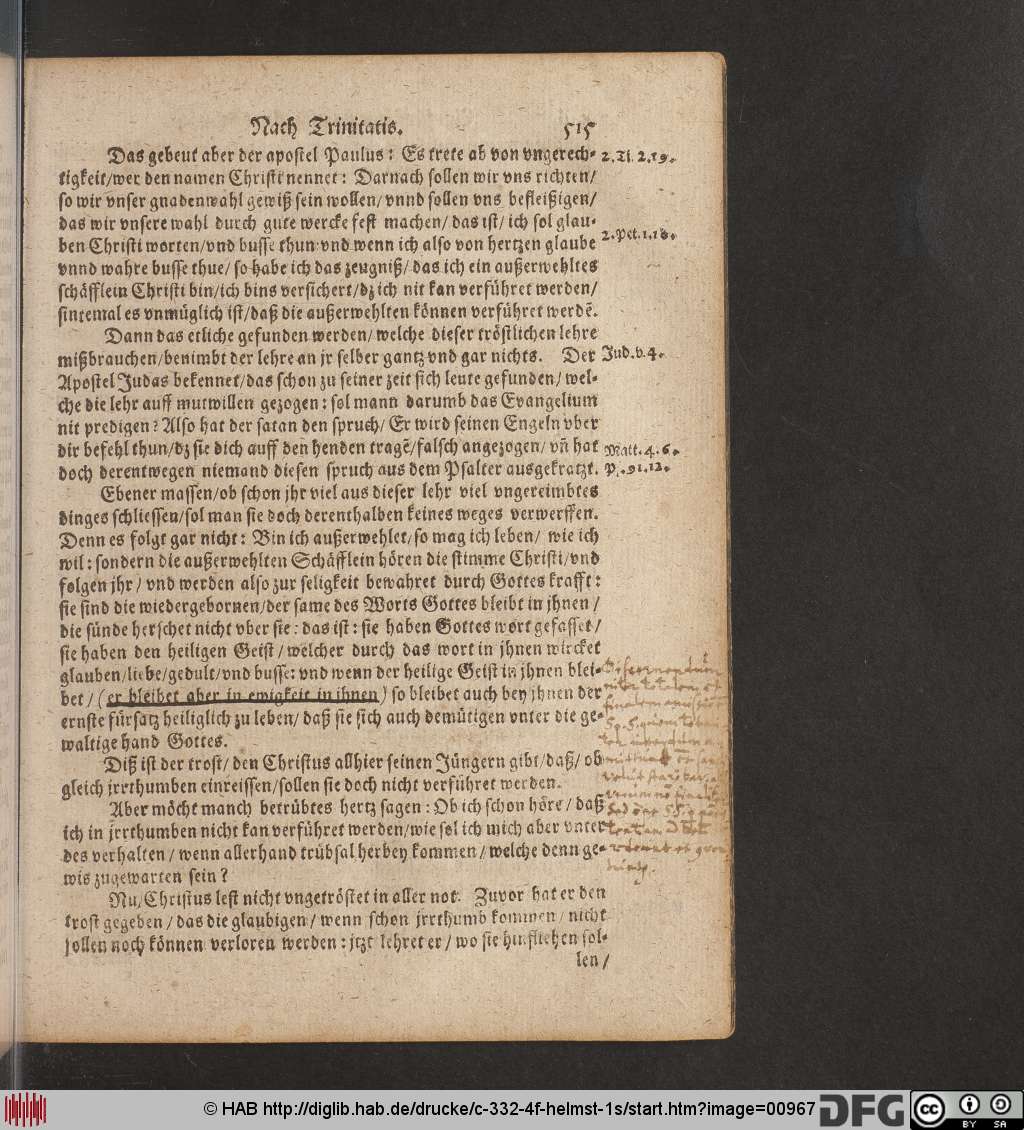 Nach Trinitatis. 515
Das gebeut aber der apostel Paulus: Es trete ab von vngerech- 2. Ti. 2. 19.
tigkeit/wer den namen Christi nennet: Darnach sollen wir vns richten/
so wir vnser gnadenwahl gewiß sein wollen/ vnnd sollen vns befleißigen/
das wir vnsere wahl durch gute wercke fest machen/ das ist/ ich sol glau-
ben Christi worten/vnd busse thun: vnd wenn ich also von hertzen glaube 2. Pet. 1. 10.
vnnd wahre busse thue/ so habe ich das zeugniß/ das ich ein außerwehltes
schäfflein Christi bin/ich bins versichert/dz ich nit kan verführet werden/
sintemal es vnmüglich ist/daß die außerwehlten können verführet werdē.
Dann das etliche gefunden werden/ welche dieser tröstlichen lehre
mißbrauchen/benimbt der lehre an jr selber gantz vnd gar nichts. Der Jud. v. 4.
Apostel Judas bekennet/das schon zu seiner zeit sich leute gefunden/ wel-
che die lehr auff mutwillen gezogen: sol mann darumb das Evangelium
nit predigen? Also hat der satan den spruch/ Er wird seinen Engeln vber
dir befehl thun/dz sie dich auff den henden tragē/falsch angezogen/ vn̄ hat Matt. 4. 6.
doch derentwegen niemand diesen spruch aus dem Psalter ausgekratzt. Ps. 91. 12.
Ebener massen/ob schon jhr viel aus dieser lehr viel vngereimbtes
dinges schliessen/sol man sie doch derenthalben keines weges verwerffen.
Denn es folgt gar nicht: Bin ich außerwehlet/so mag ich leben/ wie ich
wil: sondern die außerwehlten Schäfflein hören die stimme Christi/vnd
folgen jhr/ vnd werden also zur seligkeit bewahret durch Gottes krafft:
sie sind die wiedergebornen/der same des Worts Gottes bleibt in jhnen/
die sünde herschet nicht vber sie: das ist: sie haben Gottes wort gefasset/
sie haben den heiligen Geist/ welcher durch das wort in jhnen wircket
glauben/liebe/gedult/vnd busse: vnd wenn der heilige Geist in jhnen blei-
bet/ (er bleibet aber in ewigkeit in ihnen) so bleibet auch bey jhnen der
ernste fürsatz heiliglich zu leben/ daß sie sich auch demütigen vnter die ge-
waltige hand Gottes.
Diß ist der trost/ den Christus allhier seinen Jüngern gibt/daß/ ob
gleich jrrthumben einreissen/sollen sie doch nicht verführet werden.
Aber möcht manch betrübtes hertz sagen: Ob ich schon höre/ daß
ich in jrrthumben nicht kan verführet werden/wie sol ich mich aber vnter
des verhalten/ wenn allerhand trübsal herbey kommen/ welche denn ge-
wis zugewarten sein?
Nu/Christus lest nicht vngetröstet in aller not. Zuvor hat er den
trost gegeben/ das die glaubigen/ wenn schon jrrthumb kommen/ nicht
sollen noch können verloren werden: jtzt lehret er/ wo sie hinfliehen sol-
len/
© HAB http://diglib.hab.de/drucke/c-332-4f-helmst-1s/start.htm?image=00967 DFG cc BY SA